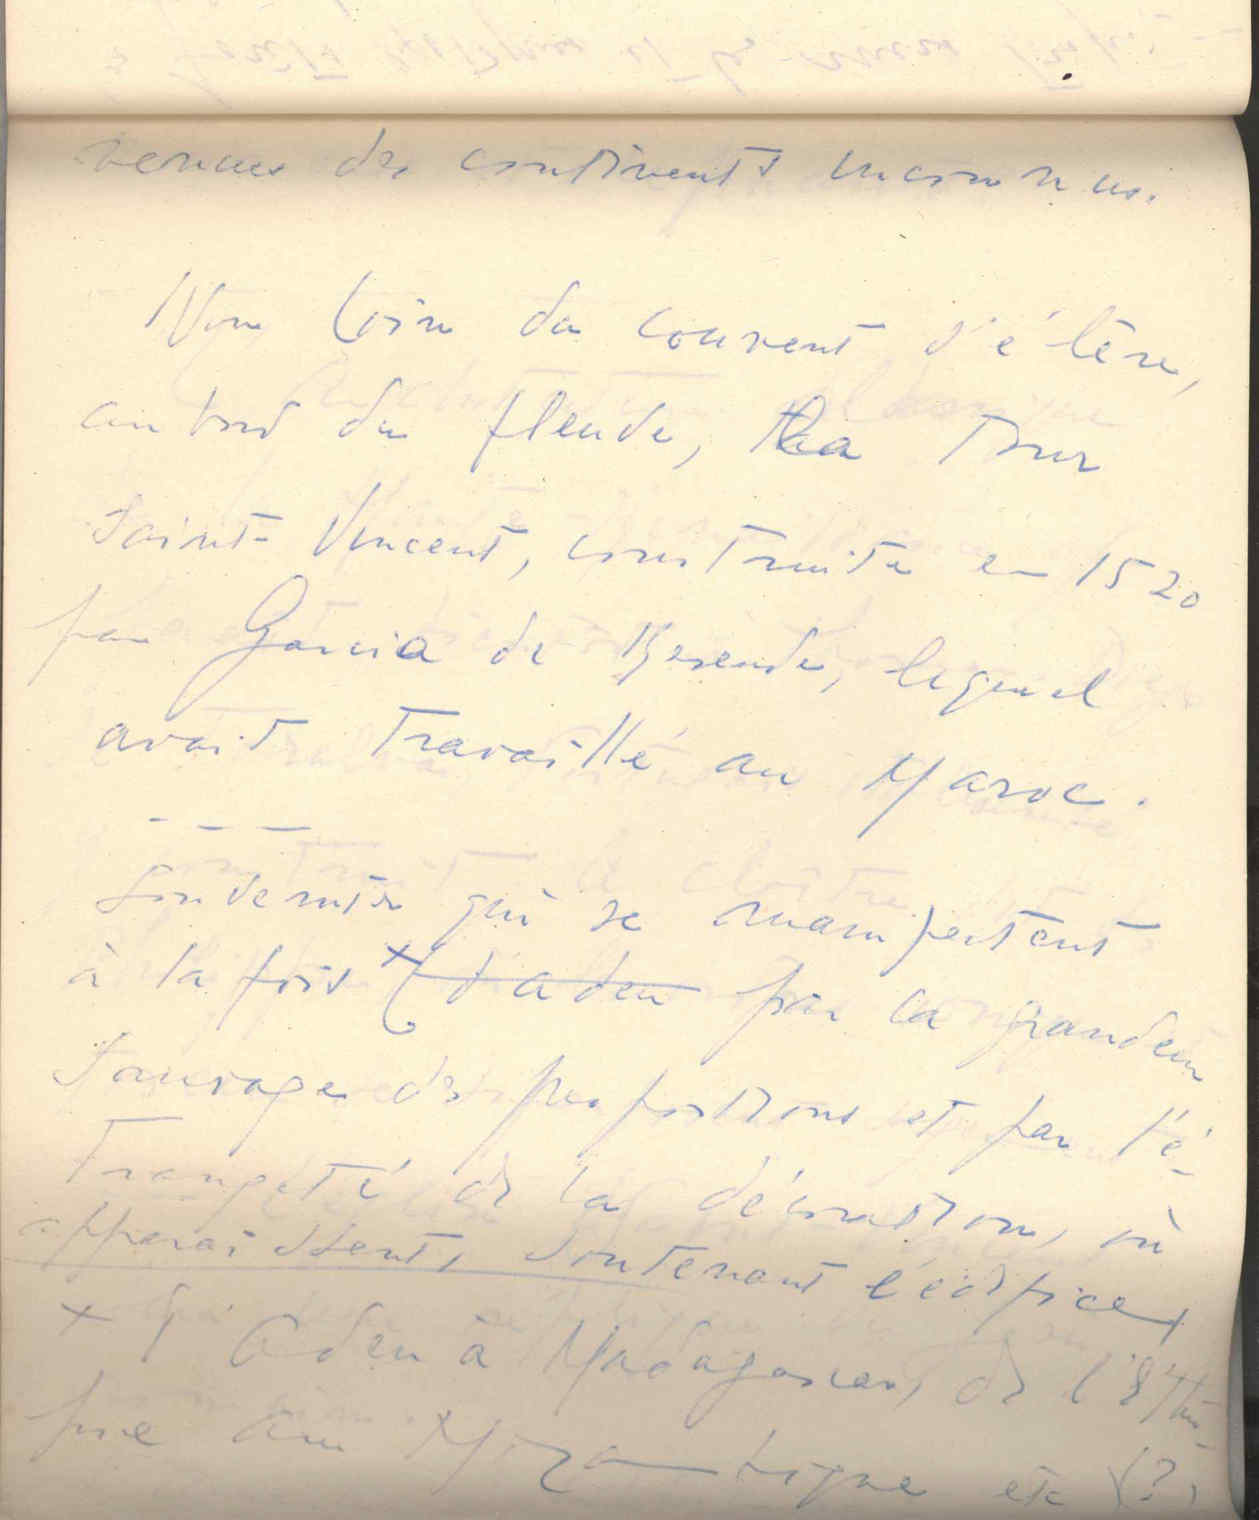 venues des continents inconnus.
Non loin du couvent s'élève,
au bord du fleuve, la Tour
Saint-Vincent, construite en 1520
par Garcia de Resende, lequel
avait travaillé au Maroc.
- - -
Souvenirs qui se manifestent
à la fois × d'aden par la grandeur
sauvage des proportions et par l'é-
trangeté de la décoration, où
apparaissent, soutenant l'édifice,
× d'Aden à Madagascar, de l'Ethio-
pie au Mozambique etc (?)